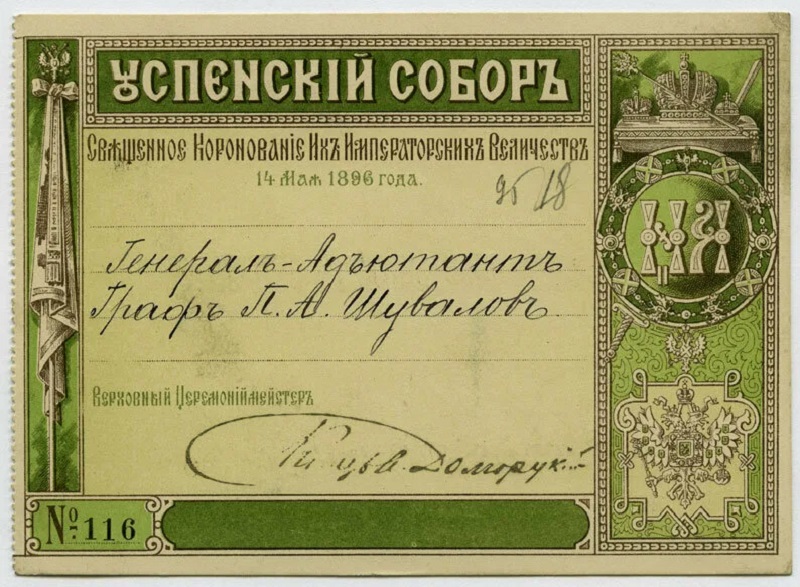 УСПЕНСКІЙ СОБОРЪ
СВЯЩЕННОЕ КОРОНОВАНІЕ ИХЪ ИМПЕРАТОРСКИХЪ ВЕЛИЧЕСТВЪ
14 Мая 1896 года.
18
Генералъ-Адъютантъ
Графъ П. А. Шуваловъ
ВЕРХОВНЫЙ ЦЕРЕМОНІЙМЕЙСТЕРЪ
№ 116